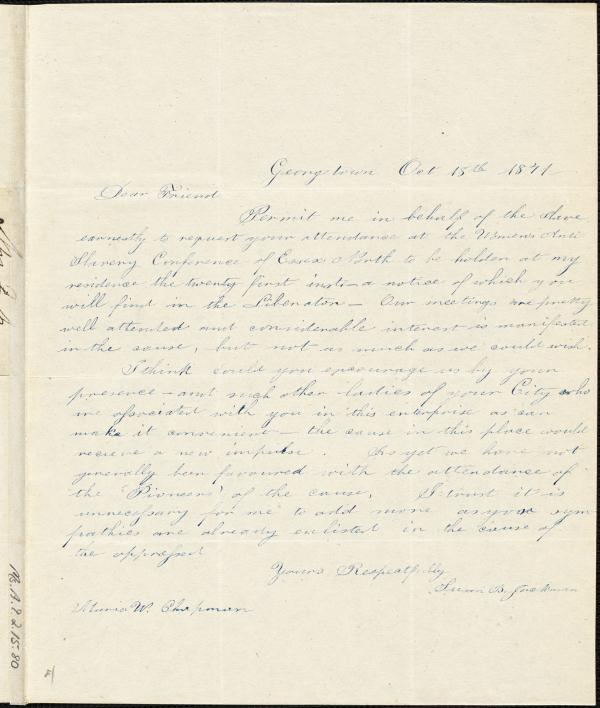 Georgetown Oct 15th 1841
Dear Friend
Permit me in behalf of the slave
earnestly to request your attendance at the Women's Anti
Slavery Conference of Essex North to be holden at my
residence the twenty first inst - a notice of which you
will find in the Liberator - Our meetings are pretty
well attended and considerable interest is manifested
in the cause, but not as much as we could wish.
I think could you encourage us by your
presence - and such other ladies of your City who
are associated with you in this enterprise as can
make it convenient - the cause in this place would
receive a new impulse. As yet we have not
generally been favoured with the attendance of
the 'Pioneers' of the cause. I trust it is
unnecessary for me to add more as your sym
pathies are already enlisted in the cause of
the oppressed
Yours Respectfully
Susan B. Jackman
Maria W. Chapman
Ms. A.9.2.15.80